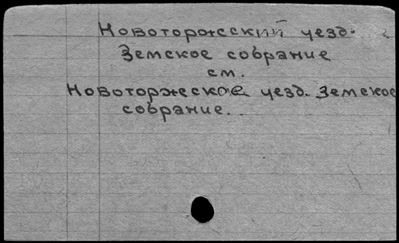 Новоторжсский уезд.
Земское собрание
см.
Новоторжеское уезд. Земское
собрание.